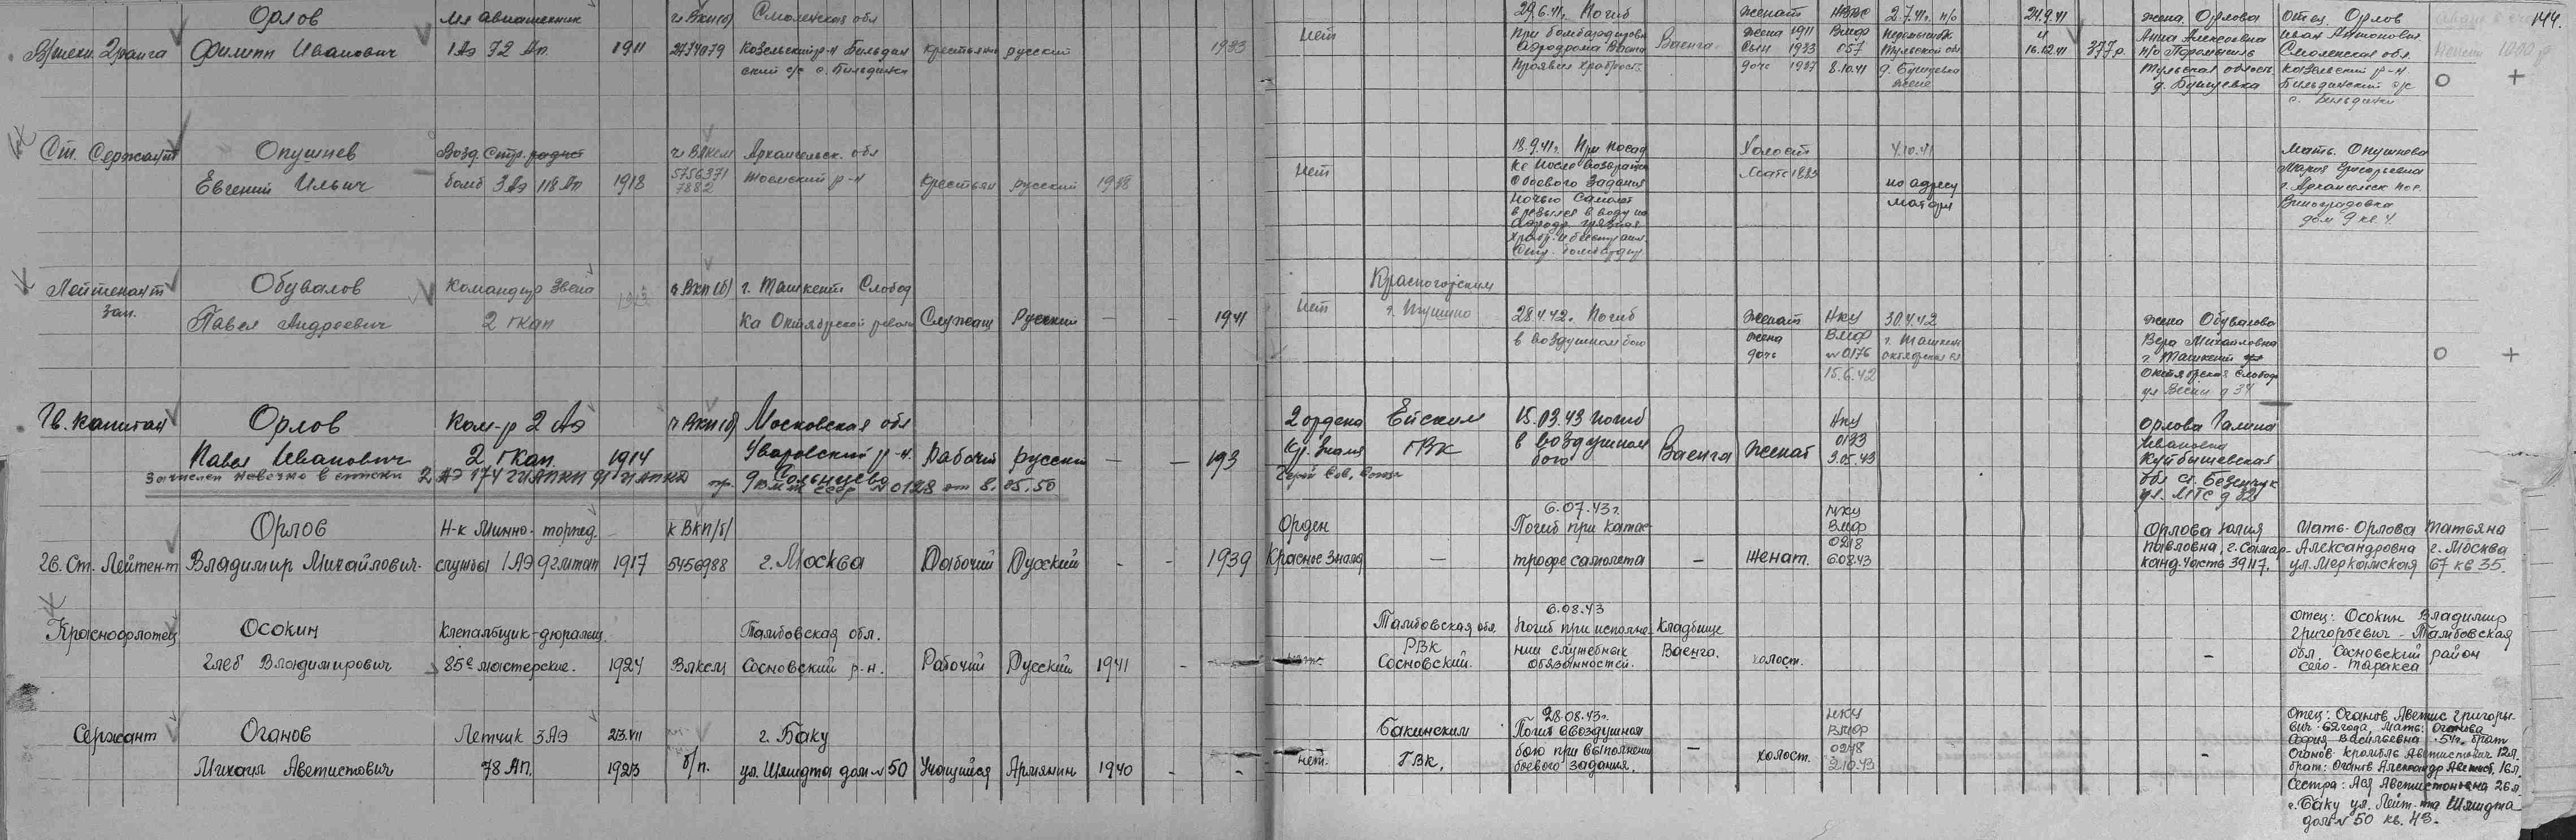 144.
Орлов
В/техн. 2 ранга Филипп Иванович
Мл авиатехник
1 Аэ 72 Ап. 1911
чл ВКП(б)
2434079
Смоленская обл
Козельский р-н
с/с с.
крестьян русский 1933
нет
29.6.41г. Погиб
при бомбардировке
Аэродрома Ваенга
Проявил храбрость
Ваенга
женат
жена 1911
сын 1933
дочь 1937
ВМФ
057
8.10.41
2.7.41г. п/о
Тульской обл
жене
24.9.41
и
16.12.41
377р.
жена Орлова
Анна Алексеевна
п/о Перемышль
Тульская область
отец Орлов
Иван Антонович
Смоленская обл.
Козельский р-н
О +
Ст. Сержант
Опушнев
Евгений Ильич
Возд. стр. радист
бомб 3 Аэ 118 Ап 1918
чл ВЛКСМ
5756371
7882
Архангельск. обл
р-н
крестьян русский 1938
нет
18.9.41г. При посад
ке после возврата
с боевого задания
ночью самолет
врезался в воду на
Аэродр. Грязная
Холост
Мать 1883
4.10.41
по адресу
матери
Мать. Опушнева
Мария Григорьевна
г. Архангельск пос.
Виноградовка
дом 9 кв. 4.
Лейтенант
Обувалов
Павел Андреевич
Командир звена
2 ГКАП
1913
ч ВКП(б)
г. Ташкент Слобод
ка Октябрьской револ
Служащ Русский — — 1941
нет
Красногорским
г. Тушино
28.4.42. Погиб
в воздушном бою
женат
жена
дочь
НКУ
ВМФ
№0176
15.6.42
30.4.42
г. Ташкент
жена Обувалова
Вера Михайловна
г. Ташкент
Октябрьская слобода
О +
Гв. капитан
Орлов
Павел Иванович
Ком-р 2 Аэ
2 ГКАП. 1914
ч ВКП(б)
Московская обл
Уваровский р-н.
Гольцево
Рабочий русский — — 193
Зачислен навечно в списки 2 АЭ 174 ГИАПКП пр. ВММ СССР №0128 от 8.05.50
2 ордена
Кр. Знамя
Герой Сов. Союза
Ейским
ГВК
15.03.43 погиб
в воздушном
бою
Ваенга
женат
НКУ
0193
3.05.43
Орлова Галина
Ивановна
Куйбышевская
обл ст. Безенчук
ул. МТС д 32
Гв. Ст. Лейтен-т
Орлов
Владимир Михайлович.
Н-к Минно-торпед.
службы 1 АЭ 9 гмтап 1917
к ВКП/б/
5456988
г. Москва
Рабочий Русский - - 1939
Орден
Красное Знамя
—
6.07.43г.
Погиб при катас-
трофе самолета
—
женат.
НКУ
ВМФ
0218
6.08.43
Орлова Юлия
Павловна, г. Самар-
канд. Часть 39117.
Мать-Орлова Татьяна
Александровна г. Москва
67 кв 35.
Краснофлотец
Осокин
Глеб Владимирович
Клепальщик-дюральщ.
85е мастерские. 1924
ВЛКСМ
Тамбовская обл.
Сосновский р-н.
Рабочий Русский 1941 -
Тамбовская обл.
РВК
Сосновский.
6.08.43
Погиб при исполне-
нии служебных
обязанностей.
Кладбище
Ваенга.
холост.
-
отец: Осокин Владимир
Григорьевич - Тамбовская
обл. Сосновский район
село - Таракса
Сержант
Оганов
Михаил Аветистович
Летчик 3 АЭ
78 АП.
23.VII
1923
б/п.
г. Баку
ул. Шмидта дом №50
Учащийся Армянин 1940 - -
нет.
Бакинским
ГВК.
28.08.43г.
Погиб в воздушном
бою при выполнении
боевого задания.
—
холост.
НКУ
ВМФ
0278
2.10.43
-
Отец: Оганов Аветис Григорье-
вич - 62 года, Мать: Оганова
София Васильевна - 54г. брат
Аветистович 12л.
брат: Оганов Александр Аветист. 16л.
Сестра: Ася Аветистоновна 26л
г. Баку ул. Лейт-та Шмидта
дом №50 кв. 43.